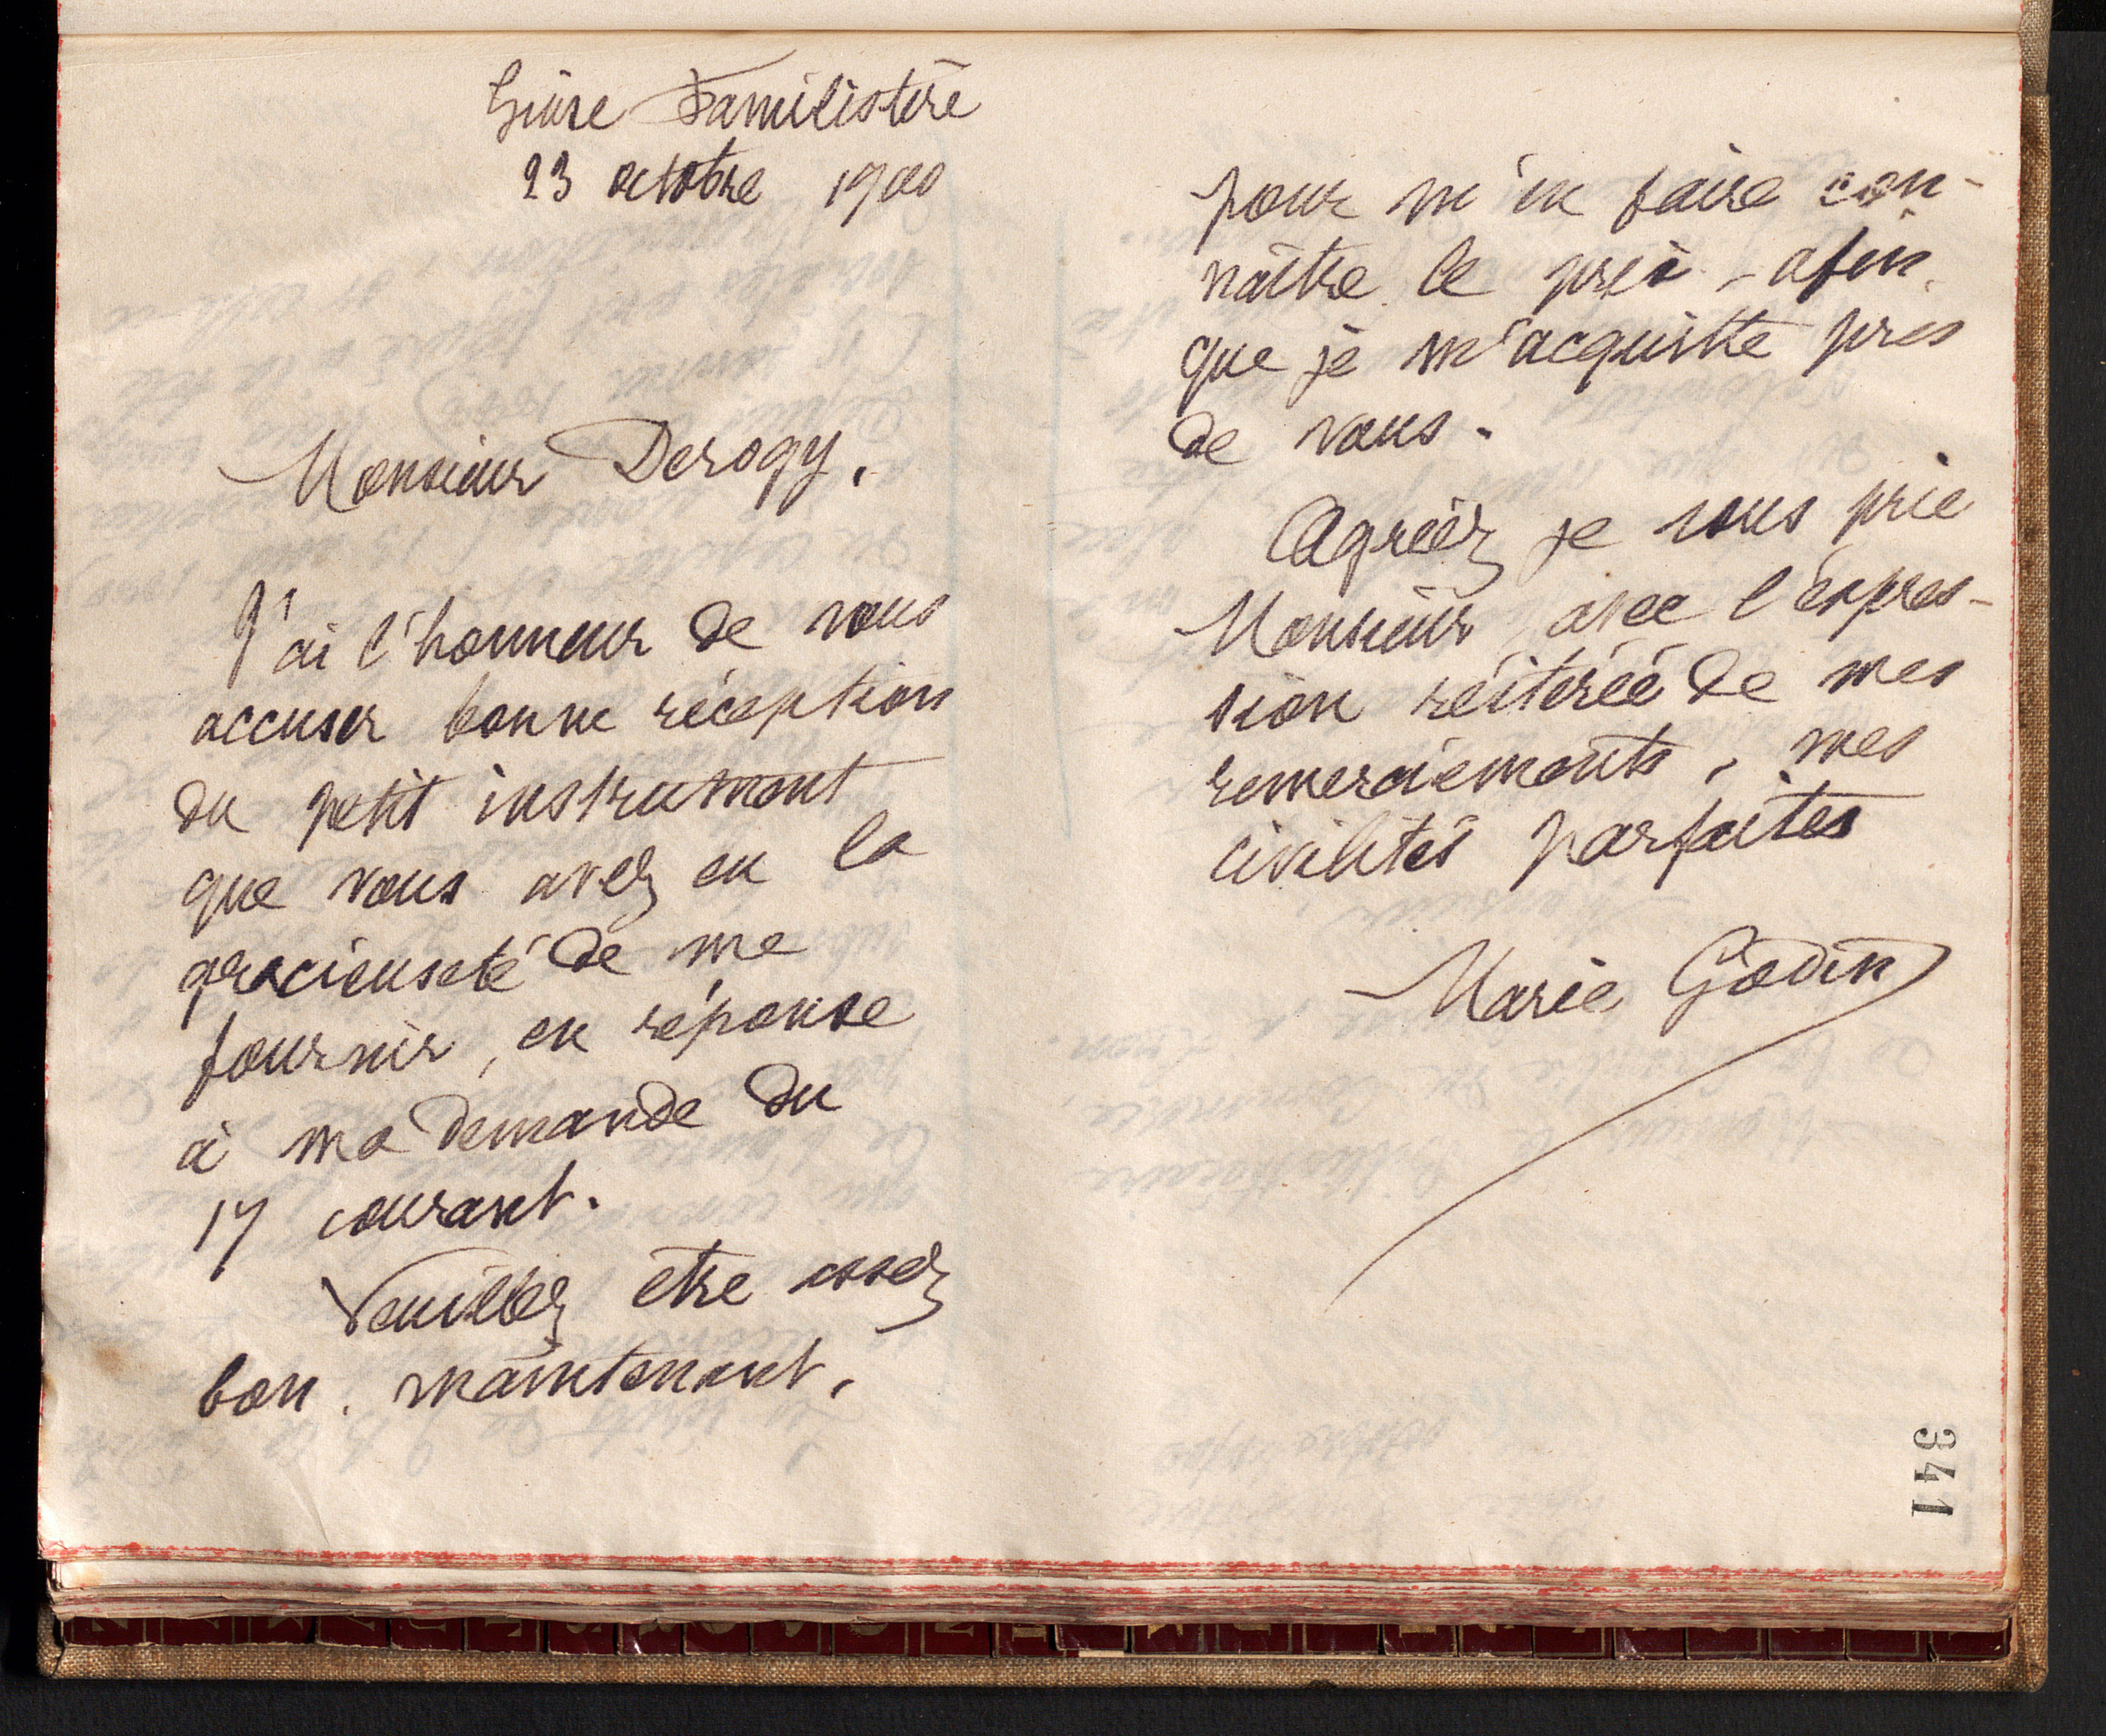 Guise Familistère
23 octobre 1900
Monsieur Derogy,
J'ai l'honneur de vous
accuser bonne réception
du petit instrument
que vous avez eu la
gracieuseté de me
fournir, en réponse
à ma demande du
17 courant.
Veuillez être assez
bon, maintenant,
pour m'en faire con-
naître le prix, afin
que je m'acquitte près
de vous.
Agréez je vous prie
Monsieur, avec l'expres-
sion réitérée de mes
remerciements, mes
civilités parfaites
Marie Godin
341